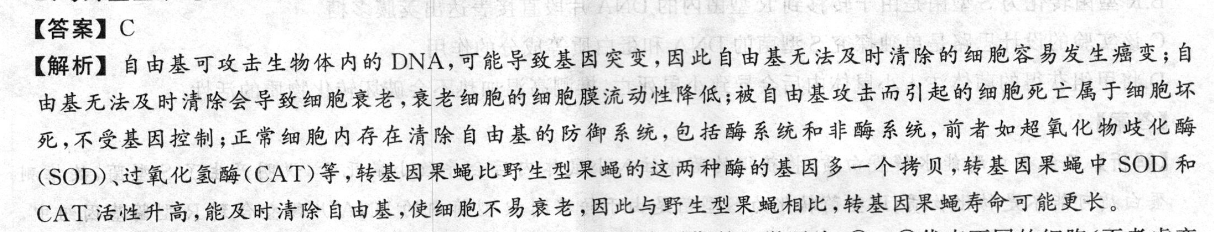 【答案】C
【解析】自由基可攻击生物体内的 DNA,可能导致基因突变,因此自由基无法及时清除的细胞容易发生癌变;自
由基无法及时清除会导致细胞衰老,衰老细胞的细胞膜流动性降低;被自由基攻击而引起的细胞死亡属于细胞坏
死,不受基因控制;正常细胞内存在清除自由基的防御系统,包括酶系统和非酶系统,前者如超氧化物歧化酶
(SOD)、过氧化氢酶(CAT)等,转基因果蝇比野生型果蝇的这两种酶的基因多一个拷贝,转基因果蝇中 SOD 和
CAT 活性升高,能及时清除自由基,使细胞不易衰老,因此与野生型果蝇相比,转基因果蝇寿命可能更长。